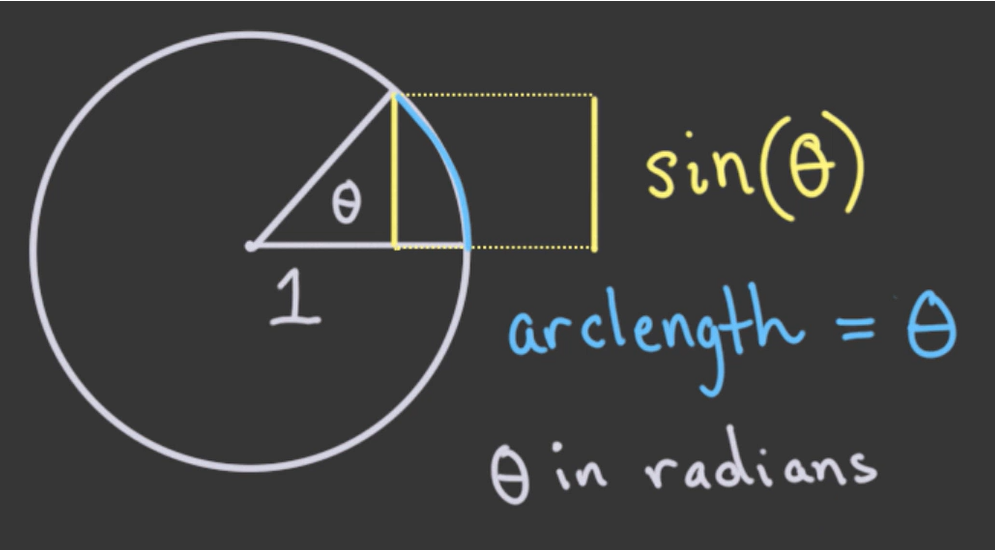 sin(θ)
θ
1
arclength = θ
θ in radians